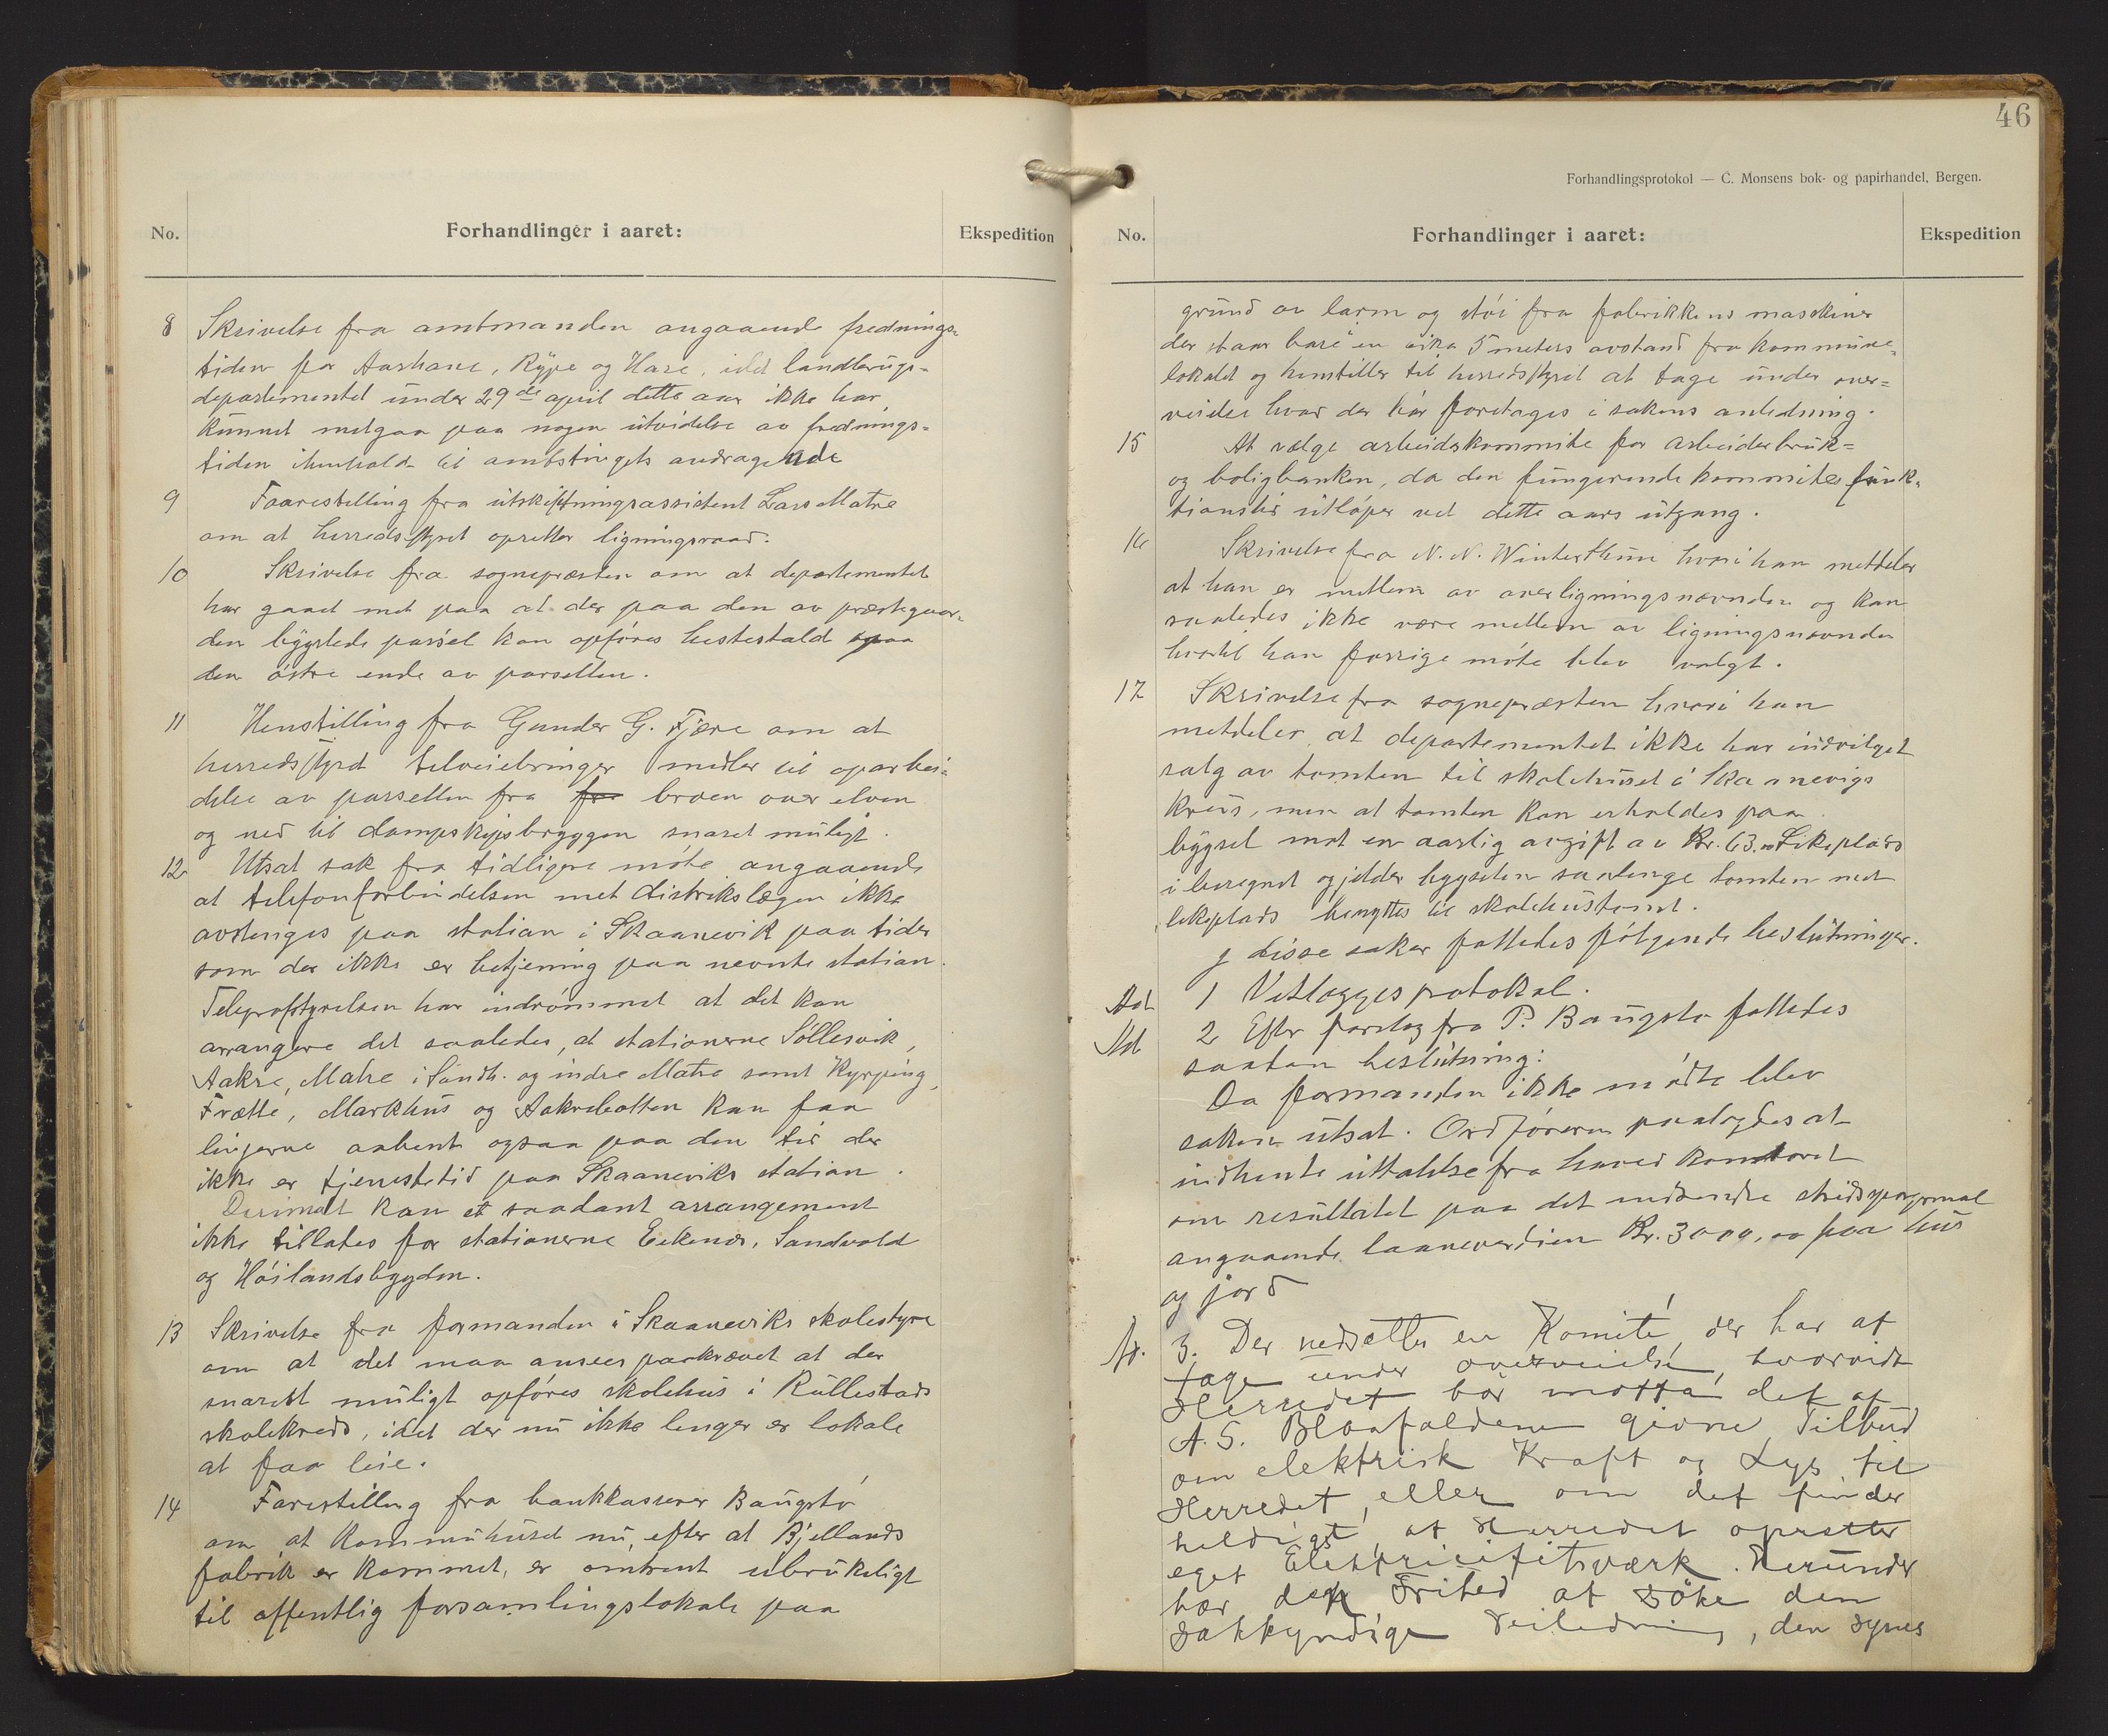 No.
Forhandlinger i aaret:
Ekspedition
8 Skrivelse fra amtmanden angaaende frednings-
tiden for Aarhane, Rype og Hare, idet landbrugs-
departementet under 29de april dette aar ikke har
kunnet medgaa paa nogen utvidelse av frednings-
tiden ihenhold til amtstingets andragende
9 Faarestelling fra utskiftningsassistent Lars Matre
om at herredsstyret opretter ligningsraad.
10 Skrivelse fra sognepresten om at departementet
har gaaet med paa at der paa den av prestegaar-
den bygslede parsel kan opføres hestestald paa
den østre ende av parsellen.
11 Henstilling fra Gunder G. Fjære om at
herredsstyret tilveiebringer midler til oparbei-
delse av parsellen fra for broen over elven
og ned til dampskipsbryggen snarest muligt.
12 Utsat sak fra tidligere møte angaaende
at telefonforbindelsen med distrikslægen ikke
avstenges paa station i Skaanevik paa tider
som der ikke er betjening paa nevnte station.
Telegrafstyrelsen har indrømmet at det kan
arrangere det saaledes, at stationerne Søllesvik,
Aakre, Matre i Søndh. og indre Matre samt Kyrping,
Frætte, Markhus og Aakrebotten kan faa
linjerne aabent ogsaa paa den tid der
ikke er tjenestetid paa Skaaneviks station.
Derimot kan et saadant arrangement
ikke tillates for stationerne Eikenes, Sandvold
og Høilandsbygden.
13 Skrivelse fra formanden i Skaaneviks skolestyre
om at det maa ansees paakrævet at der
snarest muligt opføres skolehus i Rullestads
skolekreds, idet der nu ikke lenger er lokale
at faa leie.
14 Forestilling fra bankkasserer Baugstø
om at kommuhuset nu, efter at Bjellands
fabrik er kommet, er omtrent ubrukeligt
til offentlig forsamlingslokale paa
46
Forhandlingsprotokol — C. Monsens bok- og papirhandel, Bergen.
No.
Forhandlinger i aaret:
Ekspedition
grund av larm og støi fra fabrikkens maskiner
der staar bare en cirka 5 meters avstand fra kommune-
lokalet og henstiller til herredsstyret at tage under over=
veielse hvad der bør foretages i sakens anledning.
15 At vælge arbeidskommite for arbeiderbruk=
og boligbanken, da den fungerende kommites funk-
tionstid utløper ved dette aars utgang.
16 Skrivelse fra N. N. Winterthun hvori han meddeler
at han er medlem av overligningsnevnden og kan
saaledes ikke være medlem av ligningsnevnden
hvortil han forrige møte blev valgt.
17 Skrivelse fra sognepresten hvori han
meddeler at departementet ikke har indvilget
salg av tomten til skolehuset i Skaanevigs
kreds, men at tomten kan erholdes paa
bygsel mot en aarlig avgift av Kr. 63.00 Lekeplads
iberegnet og gjelder bygselen saalenge tomten med
lekeplads benyttes til skolehustomt.
I disse saker fattedes følgende beslutninger.
Ad 1 Vedlægges protokol.
Ad 2 Efter forslag fra P. Baugstø fattedes
saadan beslutning:
Da formanden ikke mødte blev
saken utsat. Ordføreren paalagdes at
indhente uttalelse fra hovedkontoret
om resultatet paa det indsendte stridsspørgsmal
angaaende laaneverdien Kr. 3000,00 paa hus
og jord
fr. 3. Der nedsættes en Komité der har at
tage under overveielse, hvorvidt
Herredet bør motta det af
A. S. Blaafaldene givne Tilbud
om elektrisk Kraft og Lys til
Herredet, eller om det finder
heldigst, at Herredet opretter
eget Elektricitetsværk. Herunder
har den Frihed at søke den
Sakkyndige Veiledning, den synes